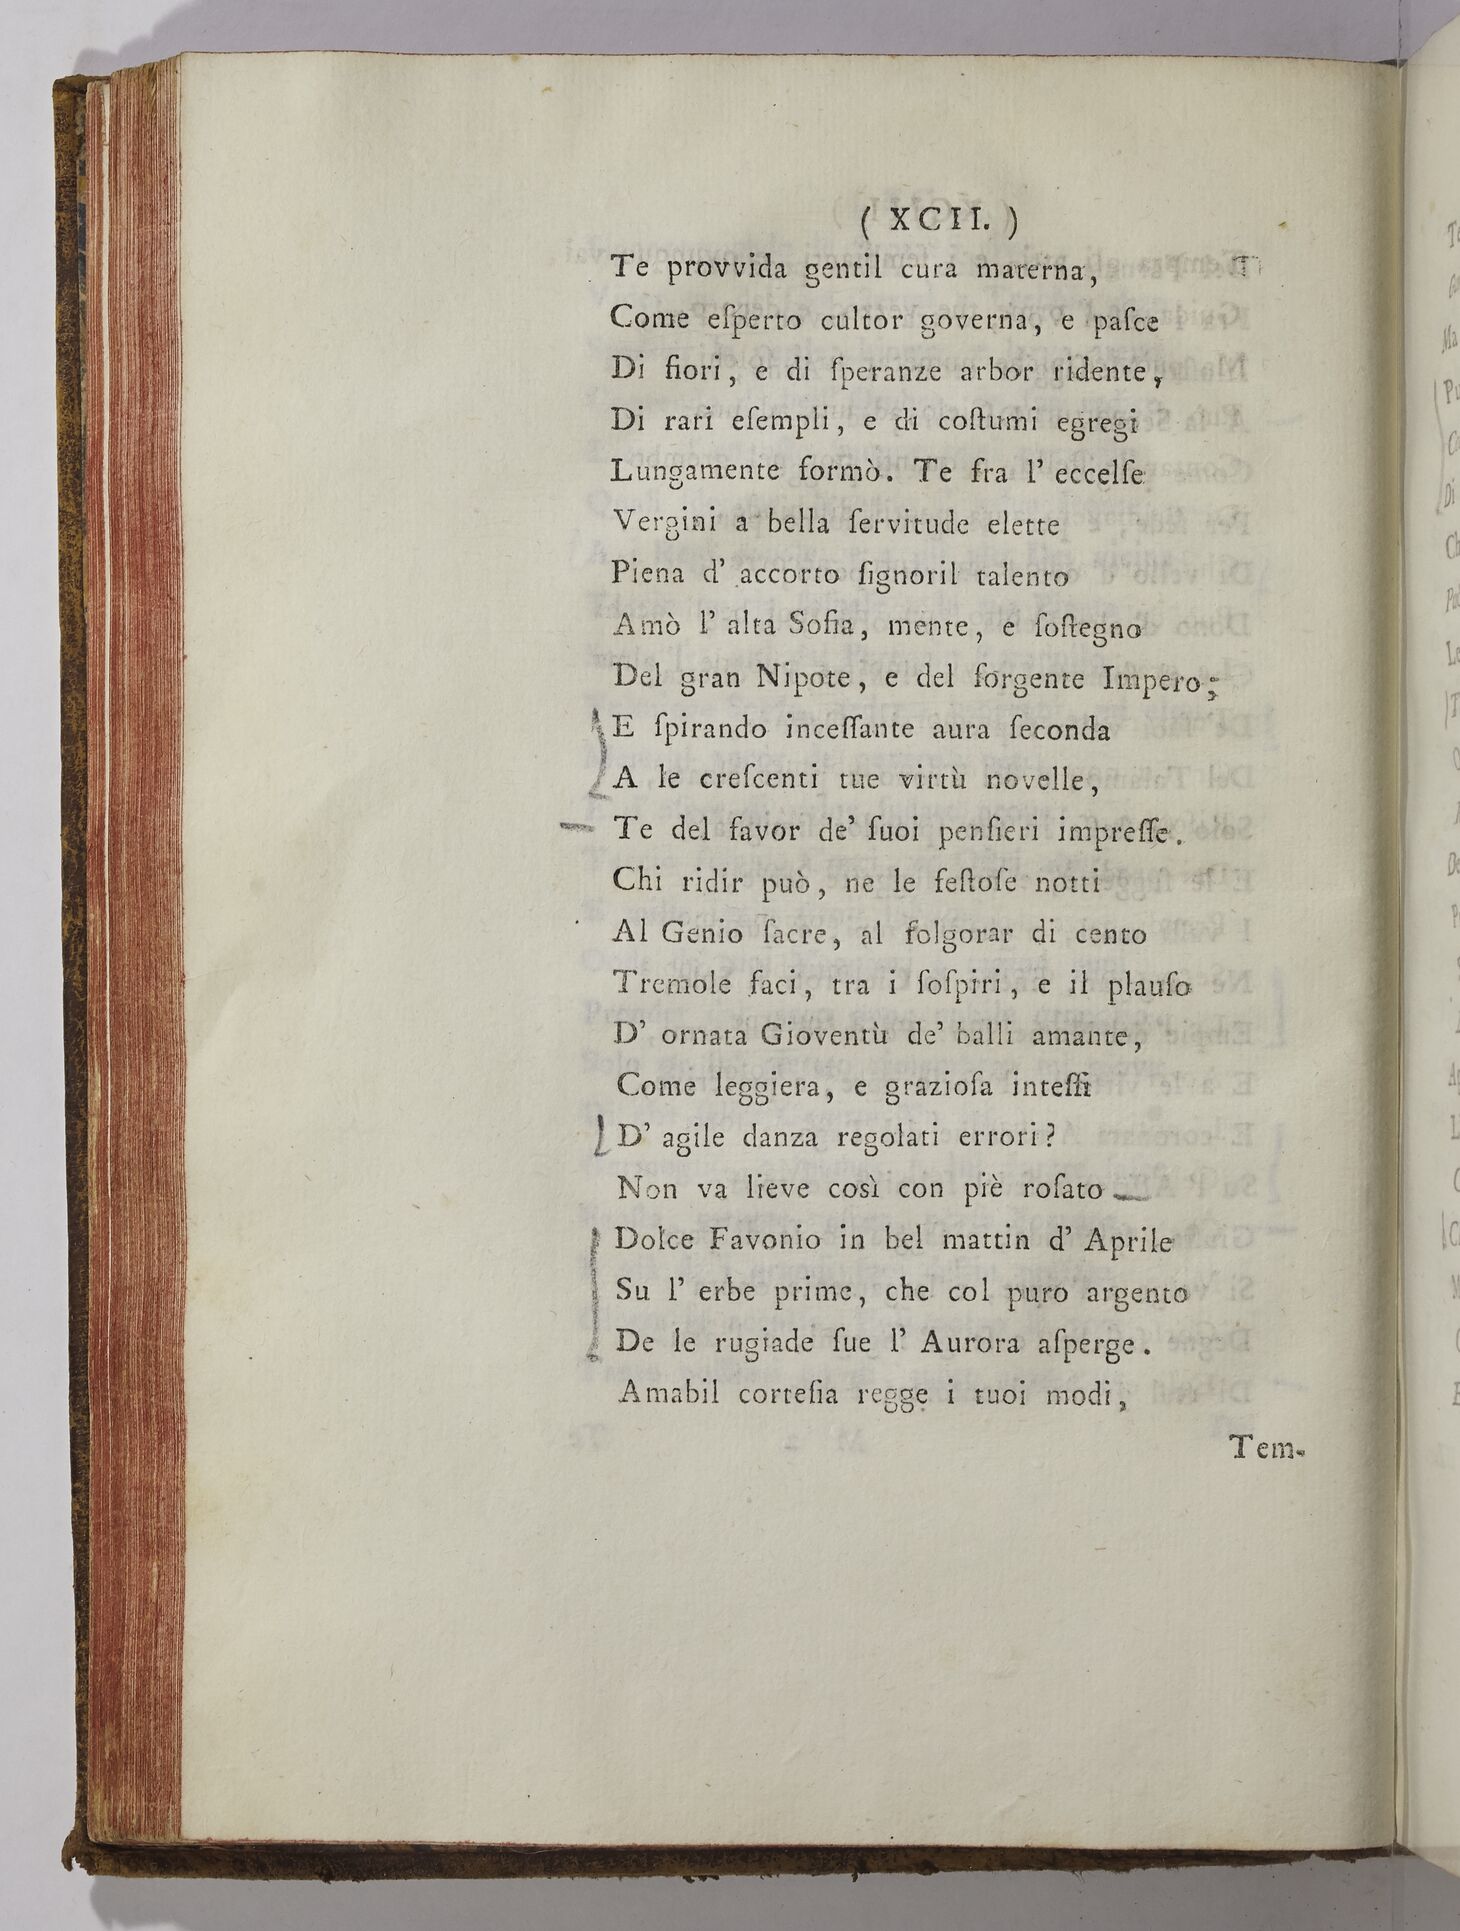 ( XCII. )
Te provvida gentil cura materna,
Come eſperto cultor governa, e paſce
Di fiori, e di ſperanze arbor ridente,
Di rari eſempli, e di coſtumi egregi
Lungamente formò. Te fra l' eccelſe
Vergini a bella ſervitude elette
Piena d' accorto ſignoril talento
Amò l' alta Sofia, mente, e ſoſtegno
Del gran Nipote, e del ſorgente Impero;
E ſpirando inceſſante aura ſeconda
A le creſcenti tue virtù novelle,
Te del favor de' ſuoi penſieri impreſſe.
Chi ridir può, ne le feſtoſe notti
Al Genio ſacre, al folgorar di cento
Tremole faci, tra i ſoſpiri, e il plauſo
D' ornata Gioventù de' balli amante,
Come leggiera, e grazioſa inteſſi
D' agile danza regolati errori?
Non va lieve così con piè roſato
Dolce Favonio in bel mattin d' Aprile
Su l' erbe prime, che col puro argento
De le rugiade ſue l' Aurora aſperge.
Amabil corteſia regge i tuoi modi,
Tem-